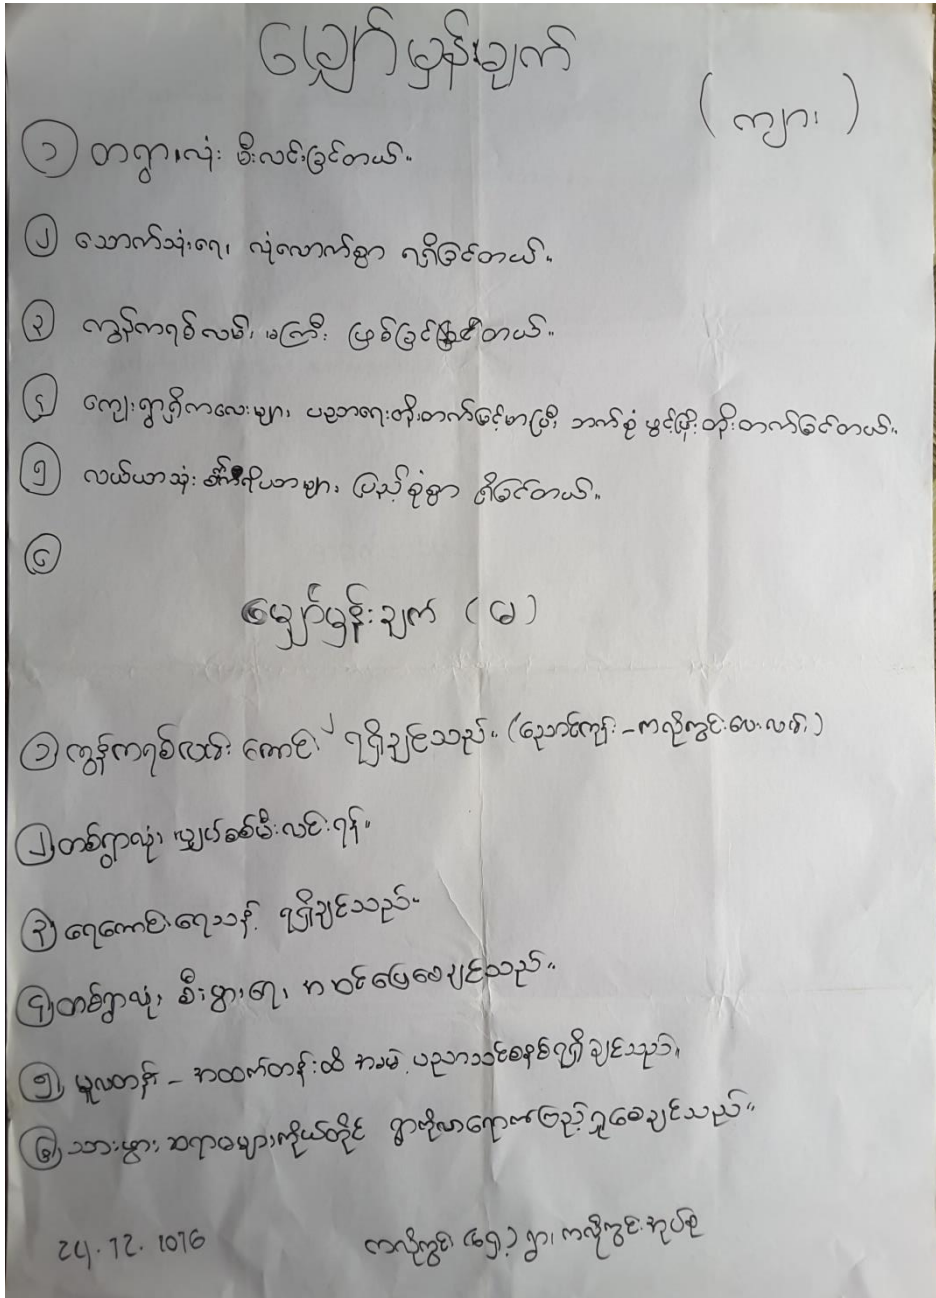 မျှော်မှန်းချက်
(ကျား)
၁ တရွာလုံး မီးလင်းခြင်တယ်။
၂ သောက်သုံးရေ လုံလောက်စွာ ရရှိခြင်တယ်။
၃ ကွန်ကရစ်လမ်း မကြီး ဖြစ်ခြင်တယ်။
၄ ကျေးရွာရှိကလေးများ ပညာရေးတိုးတက်မြင့်မားပြီး ဘက်စုံ ဖွင့်ဖြိုးတိုးတက်ခြင်တယ်။
၅ လယ်ယာသုံး ပစ္စည်းများ ပြည့်စုံစွာ ရှိခြင်တယ်။
၆
မျှော်မှန်းချက် (မ)
၁ ကွန်ကရစ်လမ်းကောင်း ရရှိချင်သည်။ (ညောင်ကုန်း - ကလိုကွင်းပေးလမ်း)
၂ တစ်ရွာလုံး လျှပ်စစ်မီးလင်းရန်။
၃ ရေကောင်းရေသန့် ရရှိချင်သည်။
၄ တစ်ရွာလုံး စီးပွားရေး အဆင်ပြေစေချင်သည်။
၅ မူလတန်း - အထက်တန်းထိ အခမဲ့ ပညာသင်စနစ်ရရှိချင်သည်။
၆ သားဖွား ဆရာမများကိုယ်တိုင် ရွာကိုလာရောက်ကြည့်ရှုစေချင်သည်။
24.12.2016
ကလိုကွင်း (ရှေ့) ရွာ၊ ကလိုကွင်းအုပ်စု